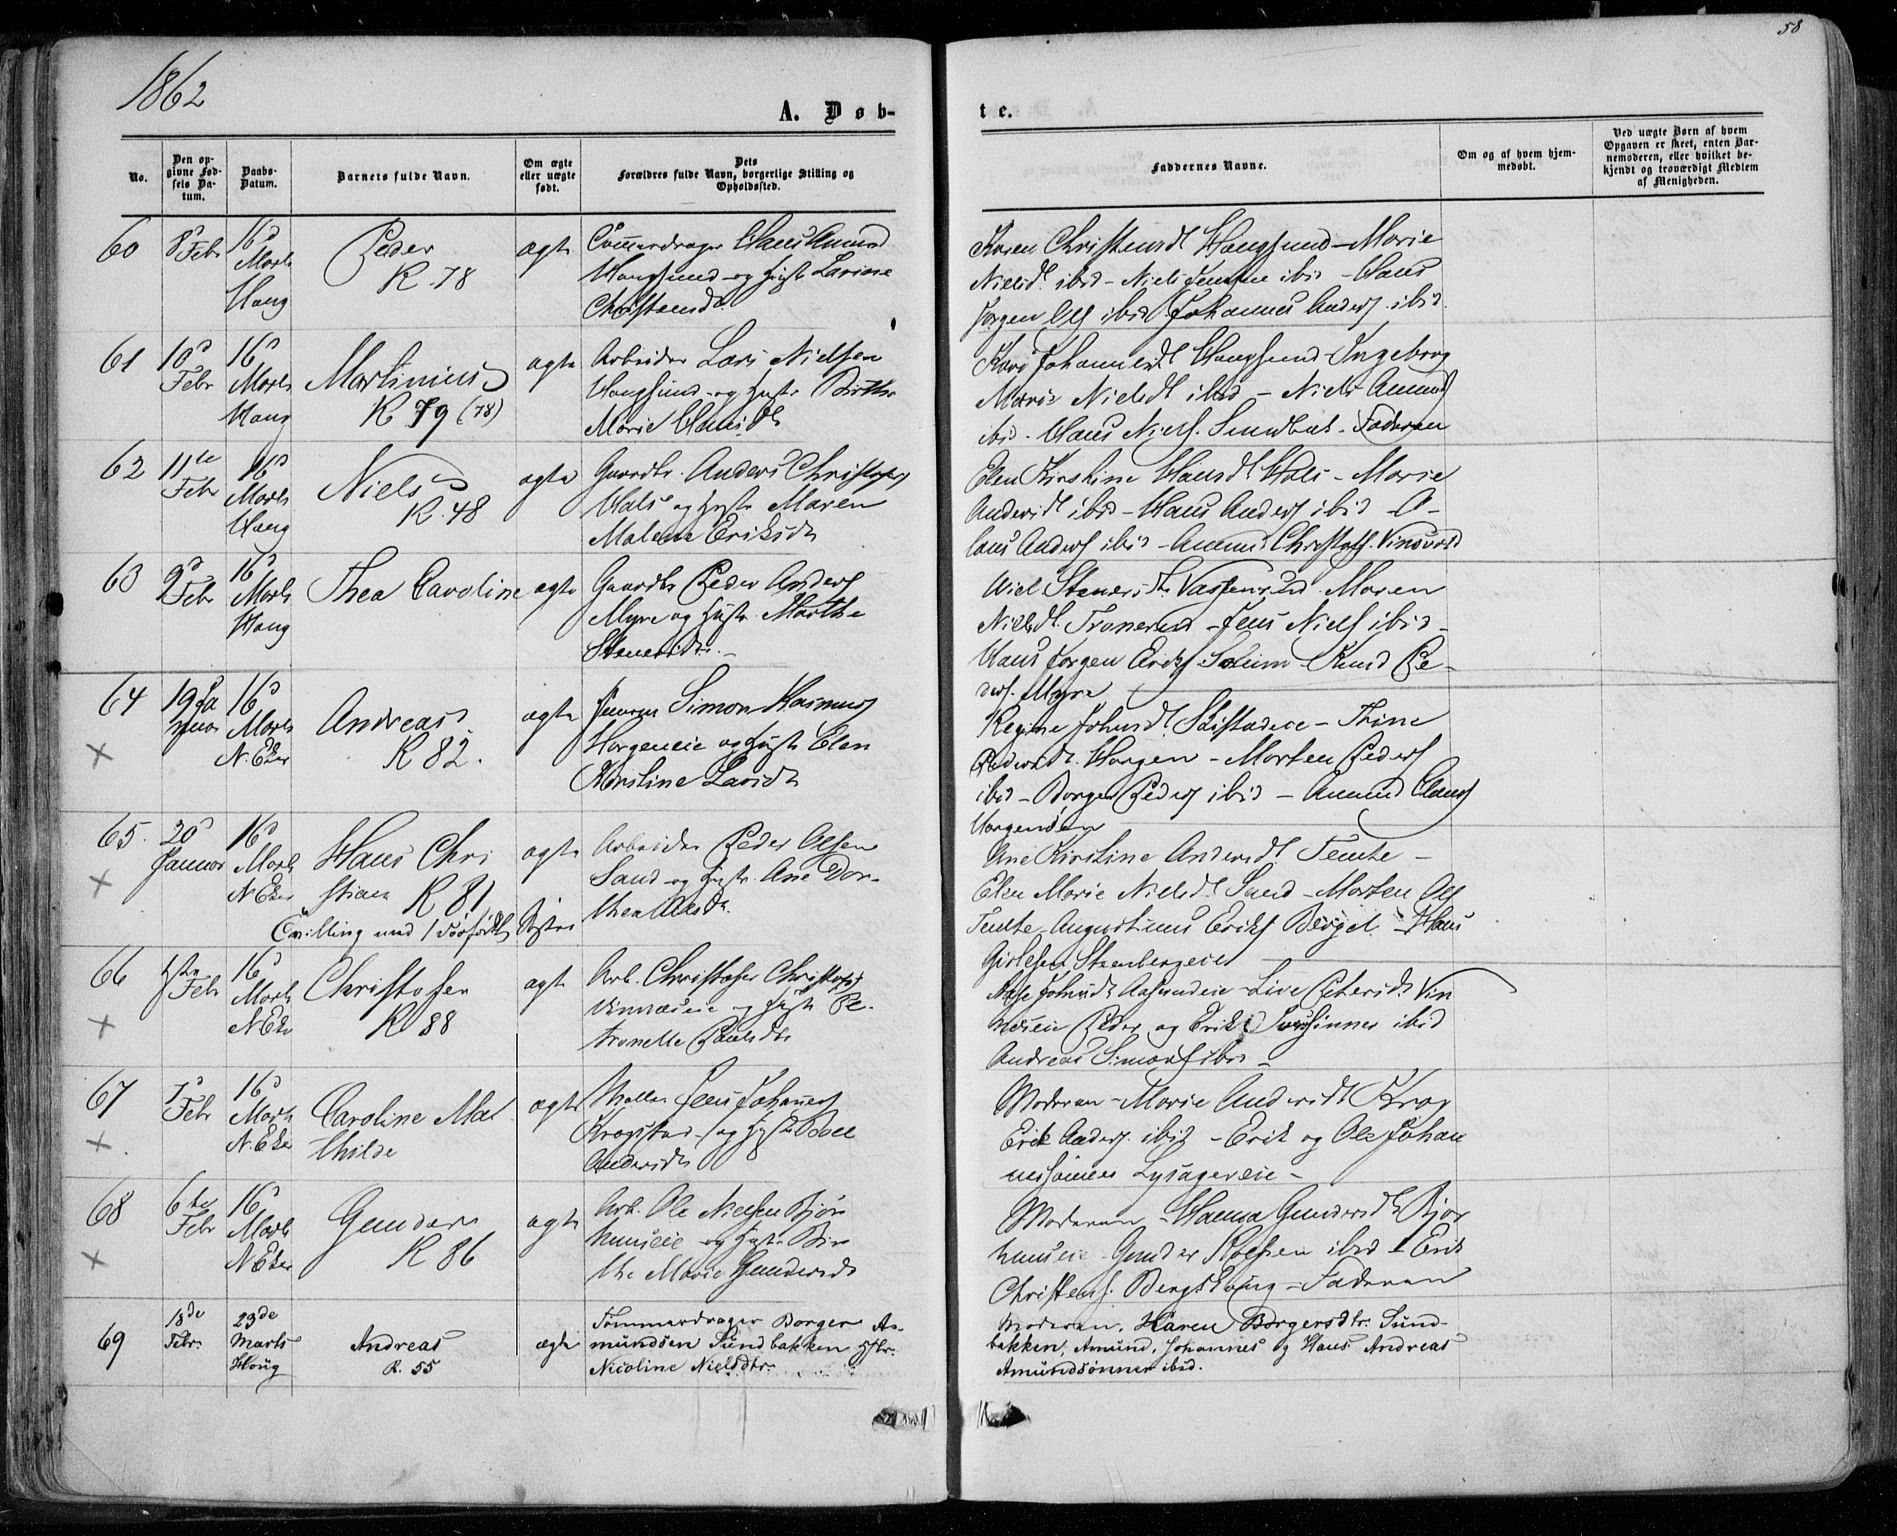 58
1862
A. Døb-
te.
No.
Den op-
givne Fød-
sels Da-
tum.
Daabs-
Datum.
Barnets fulde Navn.
Om ægte
eller uægte
født.
Dets
Forældres fulde Navn, borgerlige Stilling og
Opholdssted.
Faddernes Navne.
Om og af hvem hjem-
medøbt.
Ved uægte Børn af hvem
Opgaven er skeet, enten Bar-
nemoderen, eller hvilket be-
kjendt og troværdigt Medlem
af Menigheden.
60
8d Febr
16d
Marts
Haug
Peder
K. 78
ægte
Hans Amund
Haugsund og Hustr Lavine
Christensd.
Karen Christensdt Haugsund - Marie
Nielsdt ibid - Niels Jensen ibid - Hans
Jørgen Ols ibid Johannes Anders ibid.
61
10d
Febr
16d
Marts
Haug
Martinius
K 79 (78)
ægte
Arbeider Lars Nielsen
Haugsund og Hustr Birthe
Marie Hansdt
Kari Johannesdt Haugsund - Ingeborg
Marie Nielsdt ibid - Niels Amunds
ibid - Hans Niels. Sundbak. Faderen
62
11te
Febr
16d
Marts
Haug
Niels
K. 48
ægte
Gaardbr. Anders Christophers
Hals og Hustr Maren
Malene Eriksdt
Elen Kirstine Hansdt Hals - Marie
Andersdt ibid - Hans Anders ibid - O-
laus Anders ibid - Amund Christophs. Vinsvold
63
9d
Febr
16d
Marts
Haug
Thea Caroline
ægte
Gaardbr Peder Anders
Myre og Hustr. Marthe
Steensdtr. -
Steensdtr Maren
Nielsdt. Tronerud - Jens Niels ibid -
Hans Jørgen Eriks Solum - Knud Pe-
ders. Myre
64
19 Ja
nuar
16d
Marts
N. Eker
Andreas
K 82.
ægte
Simon Rasmus
Horgeneie og Hustr Elen
Kirstine Larsdt
Regine Johnsdt - Thine
Pedersdt. Horgen - Morten Peders
ibid - Borger Peders ibid - Amund Claus
Horgensen
65.
20d
Januar
16d
Marts
N Eker
Hans Chri
stian
K 81
Tvilling med 1 dødfødt Søster
ægte
Arbeider Peder Olsen
Sand og Hustr. Ane Dor-
thea Olsdt.
Ane Kirstine Andersdt. Temte -
Elen Marie Nielsdt Sand - Morten Ols
Temte - Augustinus Eriks Berget - Hans
Steenbergeie
66
Febr
16d
Marts
N Eker
Christofer
K 88
ægte
Arb. Christofer Christofers
Vinnæseie og Hustr Pe-
tronelle Paulsdtr
Johnsdt Aasundeie - Live Petersdt. Vin
næseie Peder og Erik ibid
Andreas Simons ibid -
67
1d
Febr
16d
Marts
N. Eker
Caroline Mat
hilde
ægte
Møller Jens Johannes
Krogstad - og Hustr Boel
Andersdt
Moderen - Marie Andersdt Krog
Erik Anders. ibid - Erik og Ole Johan
nessønner Lysagereie -
68
6te
Febr
16d
Marts
N Eker
Gunder
K 86
ægte
Arb. Ole Nielsen Bjør
nuseie og Hustr Bir
the Marie Gundersdt
Moderen - Hanna Gundersdt Bjør
nuseie - Gunder ibid - Erik
Christens. Bergshaug - Faderen
69
18de
Febr.
23de
Marts
Houg
Andreas
K. 55
ægte
Tømmerdrager Borger A-
mundsen Sundbakken Hstr.
Nicoline Nielsdtr.
Moderen, Karen Borgersdtr. Sund-
bakken, Amund, Johannes og Hans Andreas
Amundsønner ibid.